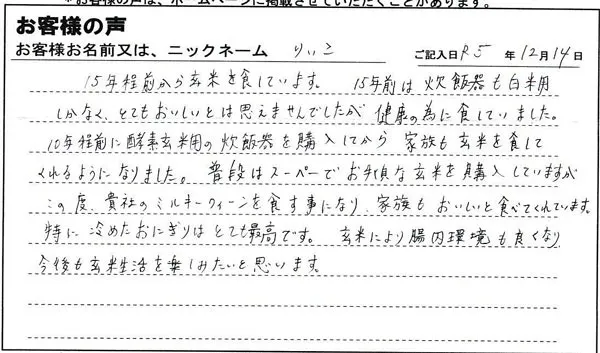 *お客様の声は、ホームページに掲載させていただくことがあります。
お客様の声
お客様お名前又は、ニックネーム りいこ ご記入日 R5 年 12月 14日
15年程前から玄米を食しています。 15年前は 炊飯器も白米用
しかなく、とてもおいしいとは思えませんでしたが 健康の為に食していました。
10年程前に酵素玄米用の炊飯器を購入してから 家族も玄米を食して
くれるようになりました。 普段はスーパーでお手頃な玄米を購入していますが
この度、貴社のミルキークィーンを食す事になり、家族も おいしいと食べてくれています。
特に 冷めたおにぎりは とても最高です。 玄米により腸内環境も良くなり
今後も玄米生活を楽しみたいと思います。